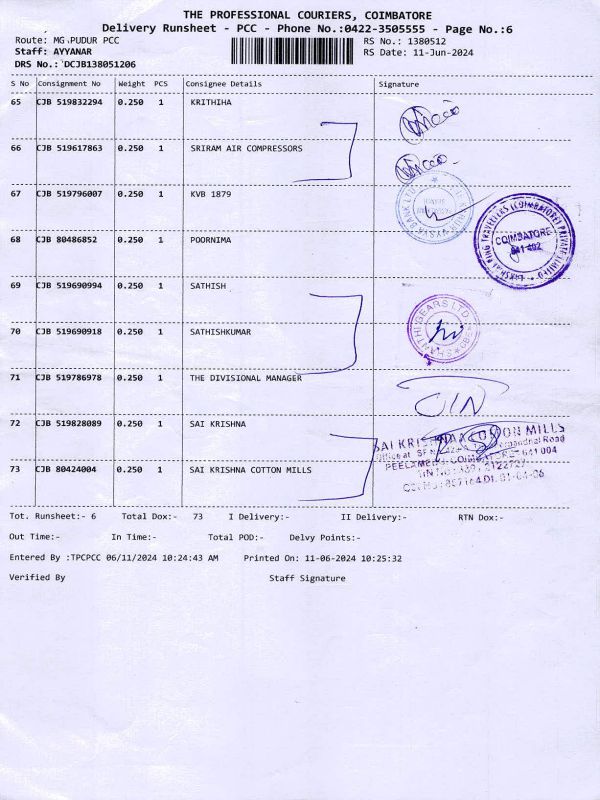 THE PROFESSIONAL COURIERS, COIMBATORE
Delivery Runsheet - PCC - Phone No.:0422-3505555 - Page No.:6
Route: MG.PUDUR PCC RS No.: 1380512
Staff: AYYANAR RS Date: 11-Jun-2024
DRS No.: DCJB138051206
S No Consignment No Weight PCS Consignee Details Signature
65 CJB 519832294 0.250 1 KRITHIHA
66 CJB 519617863 0.250 1 SRIRAM AIR COMPRESSORS
67 CJB 519796007 0.250 1 KVB 1879
68 CJB 80486852 0.250 1 POORNIMA
COIMBATORE
69 CJB 519690994 0.250 1 SATHISH
70 CJB 519690918 0.250 1 SATHISHKUMAR
SHANTHI GEARS LTD.
71 CJB 519786978 0.250 1 THE DIVISIONAL MANAGER
72 CJB 519828089 0.250 1 SAI KRISHNA
73 CJB 80424004 0.250 1 SAI KRISHNA COTTON MILLS
SAI KRISHNA COTTON MILLS
Tot. Runsheet:- 6 Total Dox:- 73 I Delivery:- II Delivery:- RTN Dox:-
Out Time:- In Time:- Total POD:- Delvy Points:-
Entered By :TPCPCC 06/11/2024 10:24:43 AM Printed On: 11-06-2024 10:25:32
Verified By Staff Signature